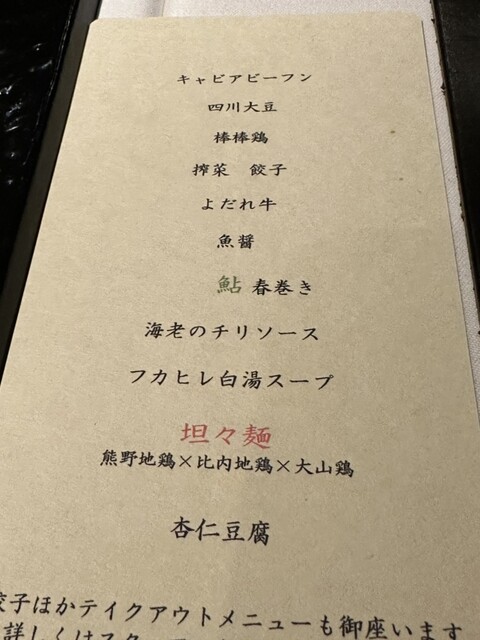 キャビアビーフン
四川大豆
棒棒鶏
搾菜　餃子
よだれ牛
魚醤
鮎 春巻き
海老のチリソース
フカヒレ白湯スープ
坦々麺
熊野地鶏×比内地鶏×大山鶏
杏仁豆腐
餃子ほかテイクアウトメニューも御座います
詳しくはスタ